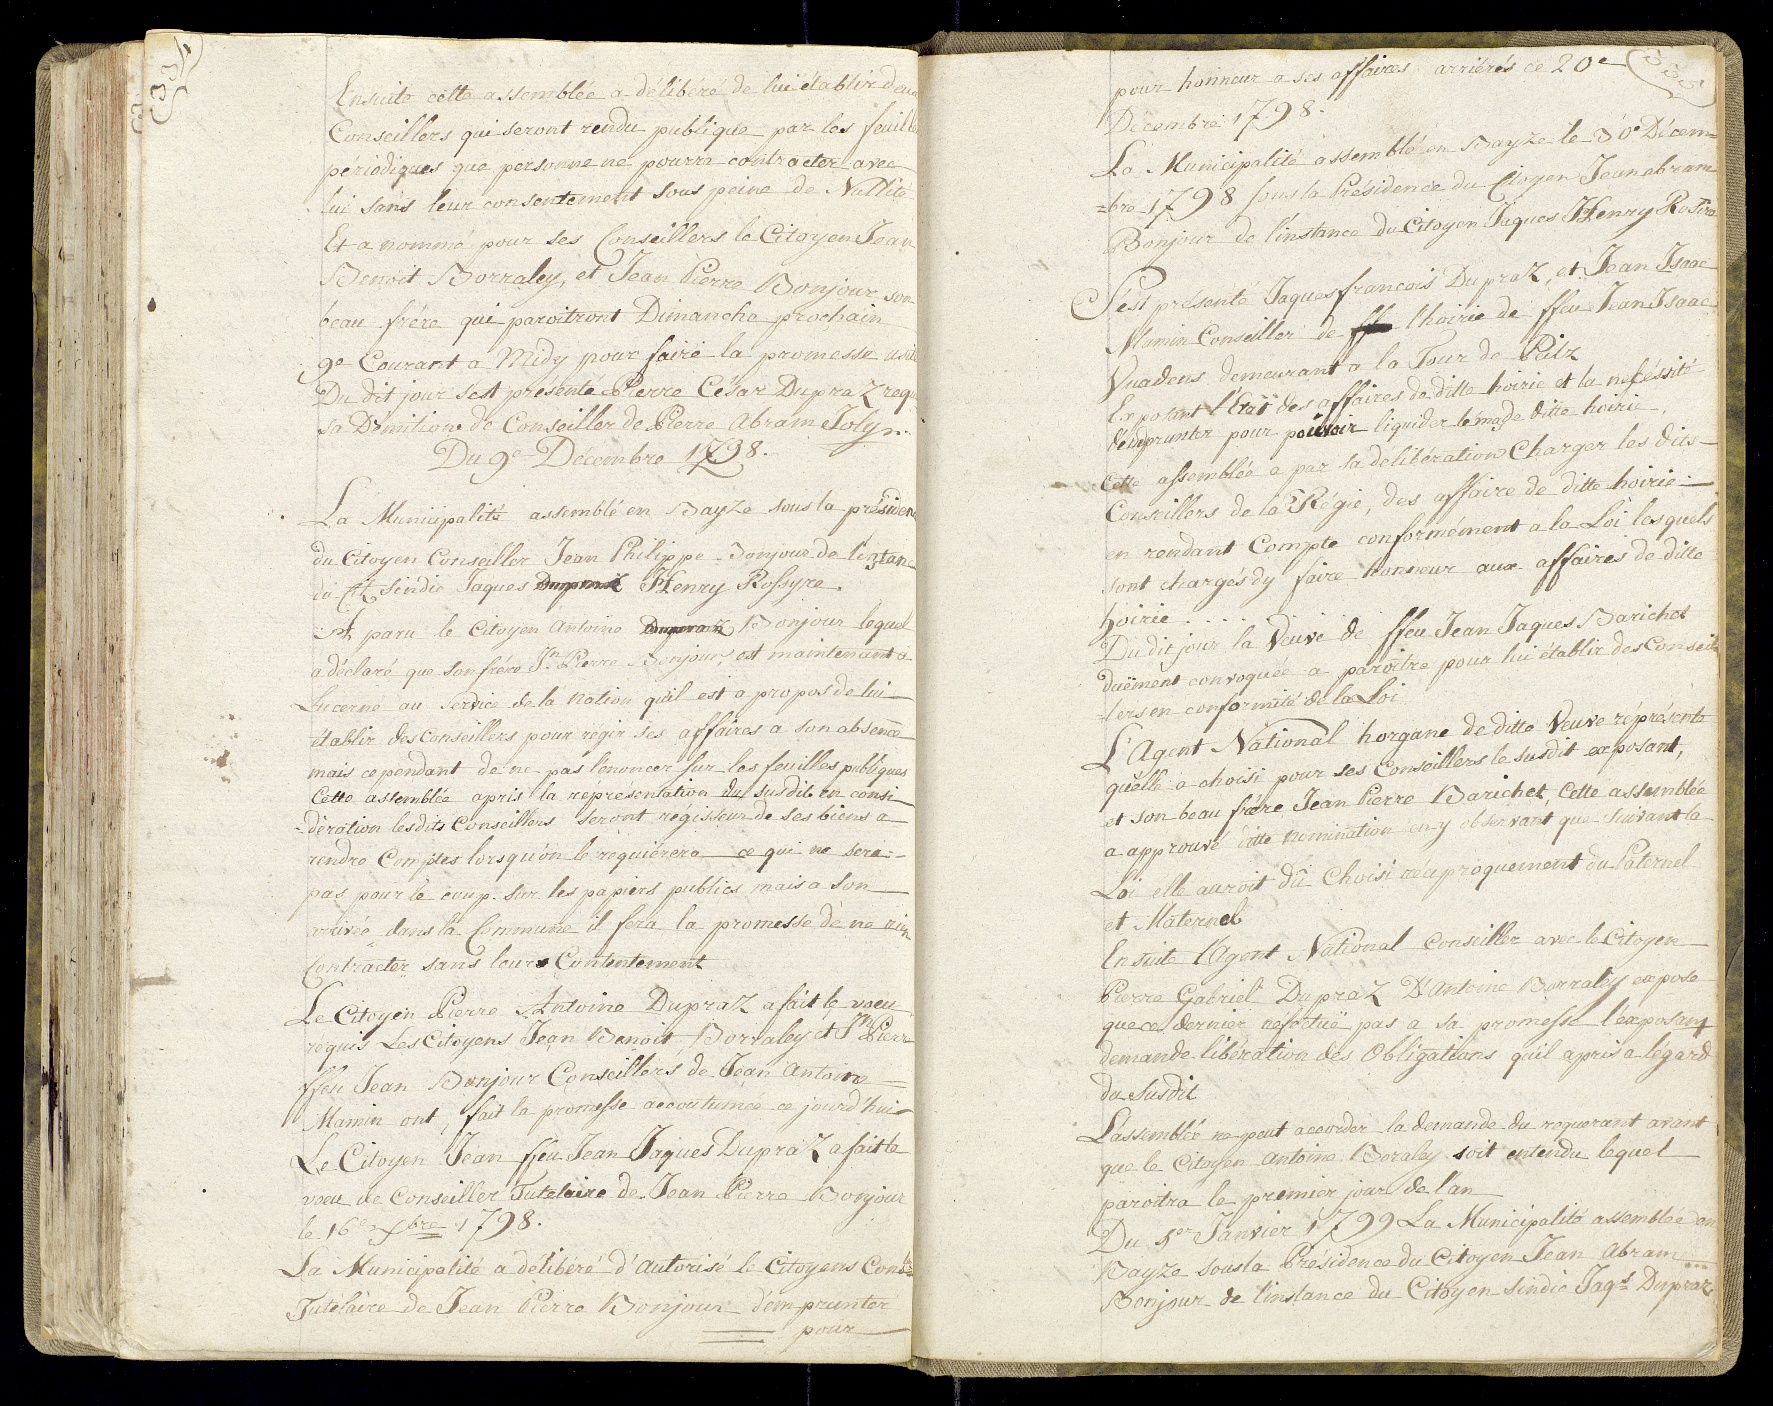 334
Ensuite cette assemblée a délibéré de lui établir deux
Conseillers qui seront rendu publique par les feuille
périodiques que personne ne pourra contracter avec
lui sans leur consentement sous peine de Nullité
Et a nommé pour ses Conseillers le Citoyen Jean
Benoit Borraley, et Jean Pierre Bonjour son
beau frére qui paroitront Dimanche prochain
9e Courant a Midy pour faire la promesse usit
Du dit jour s'est présenté Pierre César Dupraz requ
sa Démition de Conseiller de Pierre Abram Jolyn.
Du 9e Décembre 1798.
La Municipalité assemblé en Bayze sous la présiden
du Citoyen Conseiller Jean Philippe Bonjour de l'instan
du Ct Sindic Jaques Henry Rossyre.
A paru le Citoyen Antoine Bonjour lequel
a déclaré que son frére Jn Pierre Bonjour, est maintenant a
Lucerne au service de la Nation qu'il est a propos de lui
établir des Conseillers pour régir ses affaires a son absence
mais cependant de ne pas l'enoncer sur les feuilles publiques
Cette assemblée apris la représentation du susdit en consi
-dération lesdits Conseillers seront régisseur de ses biens a
rendre Comptes lorsqu'on le requiérera ce qui ne sera
pas pour le coup sur les papiers publics mais a son
arivée dans la Commune il fera la promesse de ne rien
Contracter sans leurs Contentement
Le Citoyen Pierre Antoine Dupraz a fait le voeu
requis Les Citoyens Jean Benoit Borraley et Jn Pierre
ffeu Jean Bonjour Conseillers de Jean Antoine
Mamin ont, fait la promesse accoutumée ce jourd'hui
Le Citoyen Jean ffeu Jean Jaques Dupraz a fait le
voeu de Conseiller Tutelaire de Jean Pierre Bonjour
le 16e Xbre 1798.
La Municipalité a délibéré d'autorisé le Citoyens Cons
Tutelaire de Jean Pierre Bonjour d'emprunter
pour
335
pour honneur a ses affaires arriérés ce 20e
Décembre 1798.
La Municipalité assemblé en Bayze le 30e Décem=
=bre 1798 sous la Présidence du Citoyen Jean abram
Bonjour de l'instance du Citoyen Jaques Henry Rossire
S'est présenté Jaques francois Dupraz, et Jean Isaac
Mamin Conseiller de l'hoirie de ffeu Jean Isaac
Vuadens demeurant a la Tour de Peilz
Exposant l'Etat des affaires de ditte hoirie et la nécéssité
d'emprunter pour pouvoir liquider lémage ditte hoirie,
Cette assemblée a par sa délibération Charger les dits
Conseillers de la Régie, des affaire de ditte hoirie
en rendant Compte conformément a la Loi lesquels
sont chargés dy faire honneur aux affaires de ditte
hoirie . . . .
Du dit jour la Veuve de ffeu Jean Jaques Barichet
duëment convoquée a paroitre pour lui établir des Conseil
-lers en conformité de la Loi
L'Agent National horgane de ditte Veuve réprésente
qu'elle a choisi pour ses Conseillers le susdit exposant,
et son beau frére Jean Pierre Barichet, Cette assemblée
a approuvé ditte nomination en y observant que suivant la
Loi elle auroit dû Choisi réciproquement du Paternel
et Maternel
Ensuite l'Agent National Conseiller avec le Citoyen
Pierre Gabriel Dupraz D'Antoine Borraley expose
que ce dernier nefectuë pas a sa promesse l'exposant
demande libération des Obligations qu'il apris a légard
du susdit
L'assemblée ne peut accorder la demande du requerant avant
que le Citoyen Antoine Boraley soit entendu lequel
paroitra le premier jour de l'an
Du 1er Janvier 1799 La Municipalité assemblée en
Bayze sous la Présidence du Citoyen Jean Abram
Bonjour de l'instance du Citoyen Sindic Jaqs Dupraz